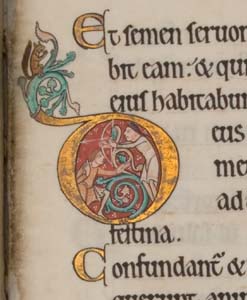 Et semen seruor
bit eam: & qui
eius habitabun
Deus
me
ad
festina.
Confundant̄ &
querunt ani